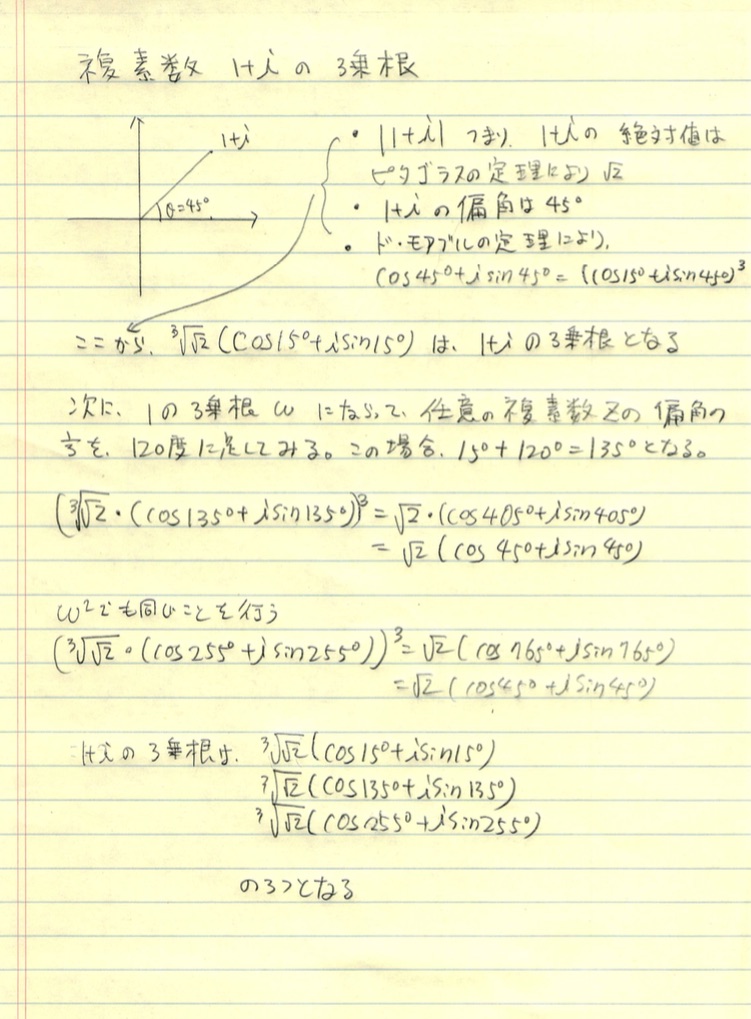 複素数 1+i の 3乗根
1+i
θ=45°
・ |1+i| つまり、1+iの 絶対値は
ピタゴラスの定理により √2
・ 1+i の偏角は 45°
・ ド・モアブルの定理により、
cos45°+i sin45° = (cos15°+i sin45°)³
ここから、³√√2 (cos15°+i sin15°) は、1+i の3乗根となる
次に、1の3乗根 ω にならって、任意の複素数Zの偏角の
方を、120度に足してみる。この場合、15°+120°=135°となる。
(³√√2・(cos135°+i sin135°))³ = √2・(cos405°+i sin405°)
= √2 (cos 45°+i sin 45°)
ω²でも同じことを行う
(³√√2・(cos255°+i sin255°))³ = √2 (cos 765°+i sin 765°)
= √2 (cos45°+i sin45°)
1+i の 3乗根は、³√√2 (cos15°+i sin15°)
³√√2 (cos135°+i sin135°)
³√√2 (cos255°+i sin255°)
の3つとなる